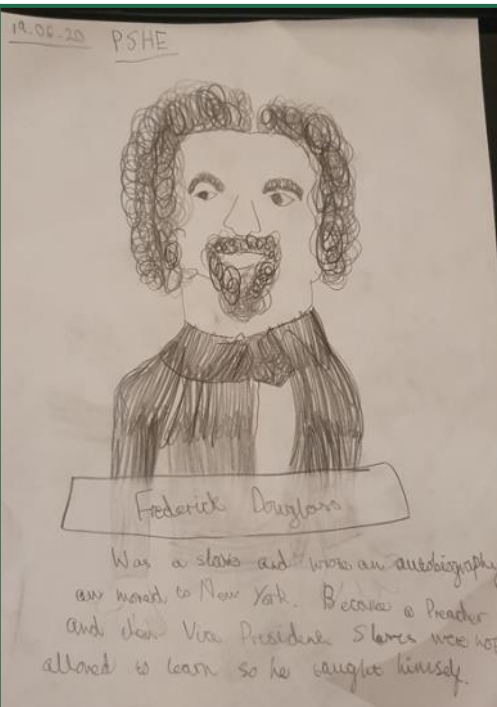 19.06.20 PSHE
Frederick Douglass
Was a slave and wrote an autobiography
an moved to New York. Became a Preacher
and then Vice President Slaves were not
allowed to learn so he taught himself.